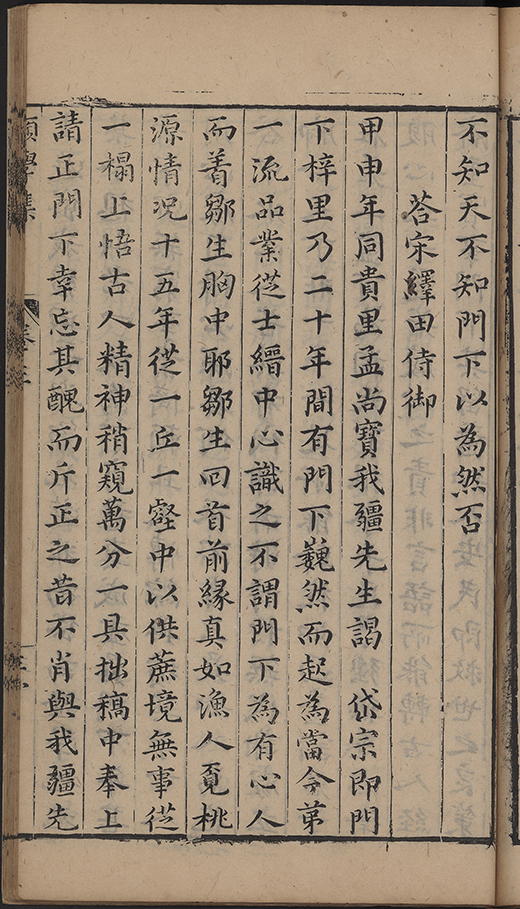 不知天不知門下以為然否
荅宋繹田侍御
甲申年同貴里孟尚寶我疆先生謁岱宗即門
下梓里乃二十年間有門下巍然而起為當今第
一流品業從士縉中心識之不謂門下為有心人
而着鄒生胸中耶鄒生回首前緣真如漁人覔桃
源情况十五年從一丘一壑中以供蔗境無事從
一榻上悟古人精神稍窺萬分一具拙稿中奉上
請正門下幸忘其醜而斤正之昔不肖與我疆先
願學集
卷三